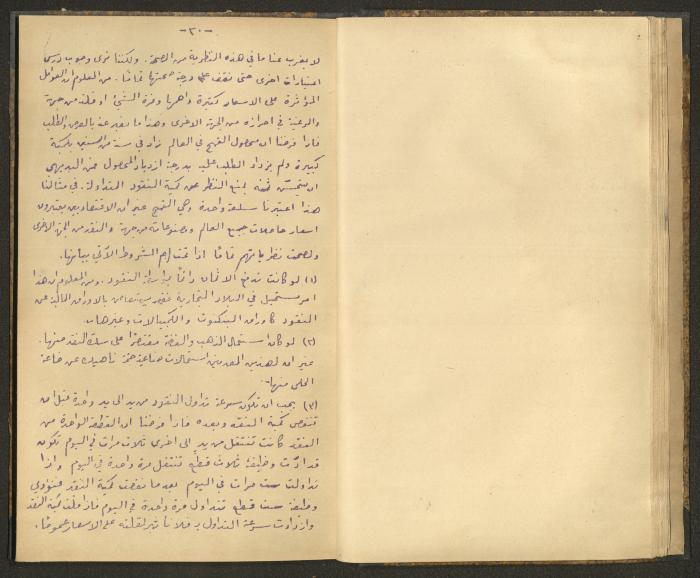 -٢٠-
لا يغرب عنا ما في هذه النظرية من الصحة. ولكننا نرى وجوب درس
اعتبارات اخرى حتى نقف على درجة صحتها تماما. من المعلوم ان العوامل
المؤثرة على الاسعار كثيرة واهمها وفرة الشيء او قلته من جهة
والرغبة في احرازه من الجهة الاخرى وهذا ما نعبر عنه بالعرض والطلب
فاذا فرضنا ان محصول القمح في العالم زاد في سنة من السنين بكمية
كبيرة ولم يزداد الطلب عليه بدرجة ازدياد المحصول فمن البديهي
ان ثمنه النظر عن كمية النقود المتداولة. في مثالنا
هذا اعتبرنا سلعة واحدة وهي القمح غير ان الاقتصاديين يعتبرون
اسعار حاصلات جميع العالم ومصنوعاته من جهة والنقد من الجهة الاخرى
وتصحت نظرياتهم تماما اذا تمت لهم الشروط الآتي بيانها.
(١) لو كانت تدفع الاثمان دائما بواسطة النقود. ومن المعلوم ان هذا
امر مستحيل في البلاد التجارية فقد يستعاض بالاوراق المالية عن
النقود كاوراق البنكنوت والكمبيالات وغيرها.
(٢) لو كان استعمال الذهب والفضة مقتصرا على سك النقد منها.
غير ان لهذين المعدنين استعمالات صناعية جمة ناهيك عن صناعة
الحلى منها.
(٣) يجب ان تكون سرعة تداول النقود من يد الى يد واحدة قبل ان
تنقص كمية النقد وبعده فاذا فرضنا ان القطعة الواحدة من
النقد كانت تنتقل من يد الى اخرى ثلاث مرات في اليوم تكون
قد ادّت وظيفة ثلاث قطع تنتقل مرة واحدة في اليوم واذا
تداولت ست مرات في اليوم بعد ما نقصت كمية النقد فتؤدي
وظيفة ست قطع تتداول مرة واحدة في اليوم فاذا قلّت كمية النقد
وازدادت سرعة التداول به فلا تأثير لقلته على الاسعار عموما.